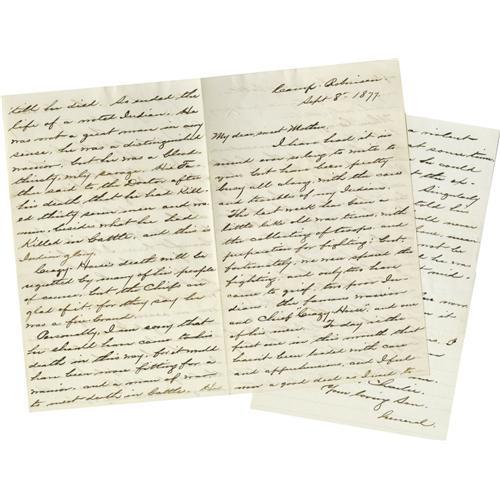 Camp Robinson
Sept 8" 1877.
My dear, sweet Mother,
I have had it in
mind ever so long to write to
you but have been pretty
busy all along with the cares
and troubles of my Indians.
The last week has been a
little like old war times, with
the collecting of troops and
preparation for fighting; but
fortunately we were spared the
fighting, and only two have
come to grief, two poor In-
dians. The famous warrior
and Chief Crazy Horse, and one
of his men. Today is the
first one in this month that
hasn't been loaded with care
and apprehensions, and I feel
now a good deal as I used to
told he died. So ended the
life of a noted Indian. He
was not a great man in any
sense, he was a distinguished
warrior, but he was a blood
thirsty, ugly savage. His Fa-
ther said to the Doctor after
his death, that he had kill-
ed thirty seven men and wo-
men, besides what he had
killed in battle, and this is
Indian glory.
Crazy Horse's death will be
regretted by many of his people
of course, but the Chiefs are
glad of it, for they say he
was a fire brand.
Personally, I am sorry that
he should have come to his
death in this way, for it would
have been more fitting for a
warrior, and a man of war
to meet death in battle. He
a violent
sometimes
he could
the ex-
told his
never
not be
he
more
it
Charlie
Your loving Son,
General.